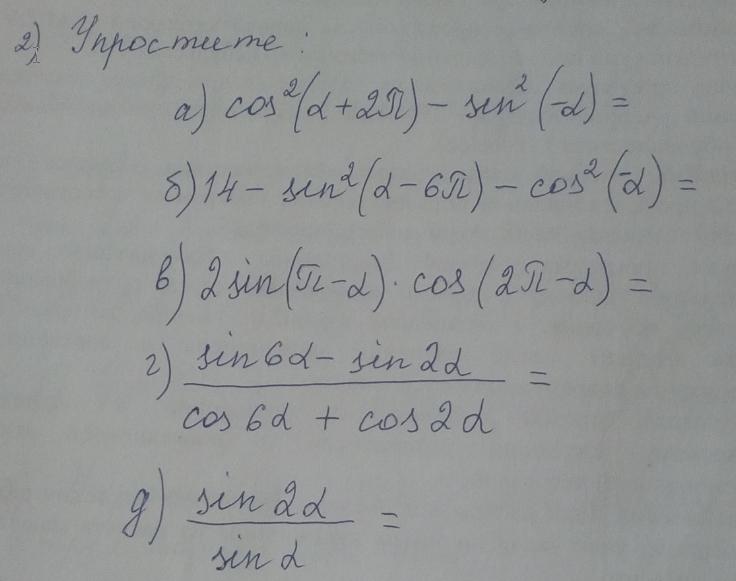 2) Упростите:
а) cos²(α+2π) − sin²(−α) =
б) 14 − sin²(α−6π) − cos²(−α) =
в) 2sin(π−α)·cos(2π−α) =
г) sin6α − sin2α / cos6α + cos2α =
д) sin2α / sinα =